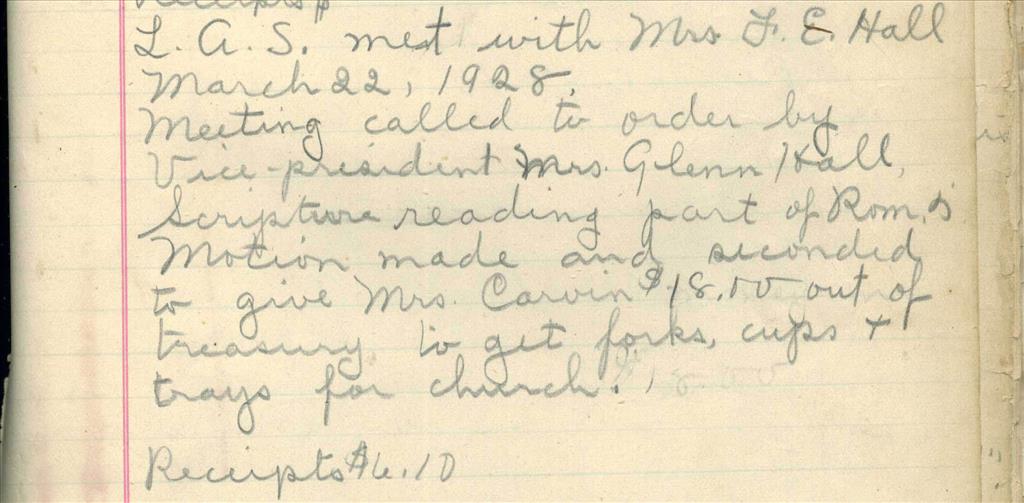 Receipts $
L. A. S. met with Mrs F. E. Hall
March 22, 1928.
Meeting called to order by
Vice-president Mrs. Glenn Hall,
Scripture reading part of Rom. 5
Motion made and seconded
to give Mrs. Carvin $18.00 out of
treasury to get forks, cups +
trays for church.
Receipts $6.10